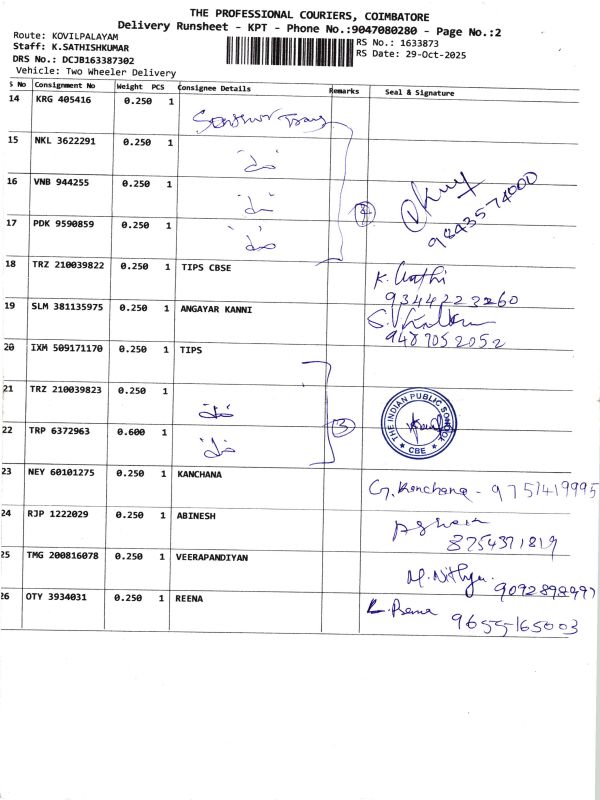 THE PROFESSIONAL COURIERS, COIMBATORE
Delivery Runsheet - KPT - Phone No.:9047080280 - Page No.:2
Route: KOVILPALAYAM
Staff: K.SATHISHKUMAR
DRS No.: DCJB163387302
Vehicle: Two Wheeler Delivery
RS No.: 1633873
RS Date: 29-Oct-2025
S No Consignment No Weight PCS Consignee Details Remarks Seal & Signature
14 KRG 405416 0.250 1
15 NKL 3622291 0.250 1
16 VNB 944255 0.250 1
17 PDK 9590859 0.250 1
4
9843574000
18 TRZ 210039822 0.250 1 TIPS CBSE K.
9344223260
19 SLM 381135975 0.250 1 ANGAYAR KANNI
9487052052
20 IXM 509171170 0.250 1 TIPS
21 TRZ 210039823 0.250 1
22 TRP 6372963 0.600 1
3
THE INDIAN PUBLIC SCHOOL
CBE
23 NEY 60101275 0.250 1 KANCHANA G. Kanchana - 9751419995
24 RJP 1222029 0.250 1 ABINESH
8754371819
25 TMG 200816078 0.250 1 VEERAPANDIYAN M. Nithya
26 OTY 3934031 0.250 1 REENA
9655165003